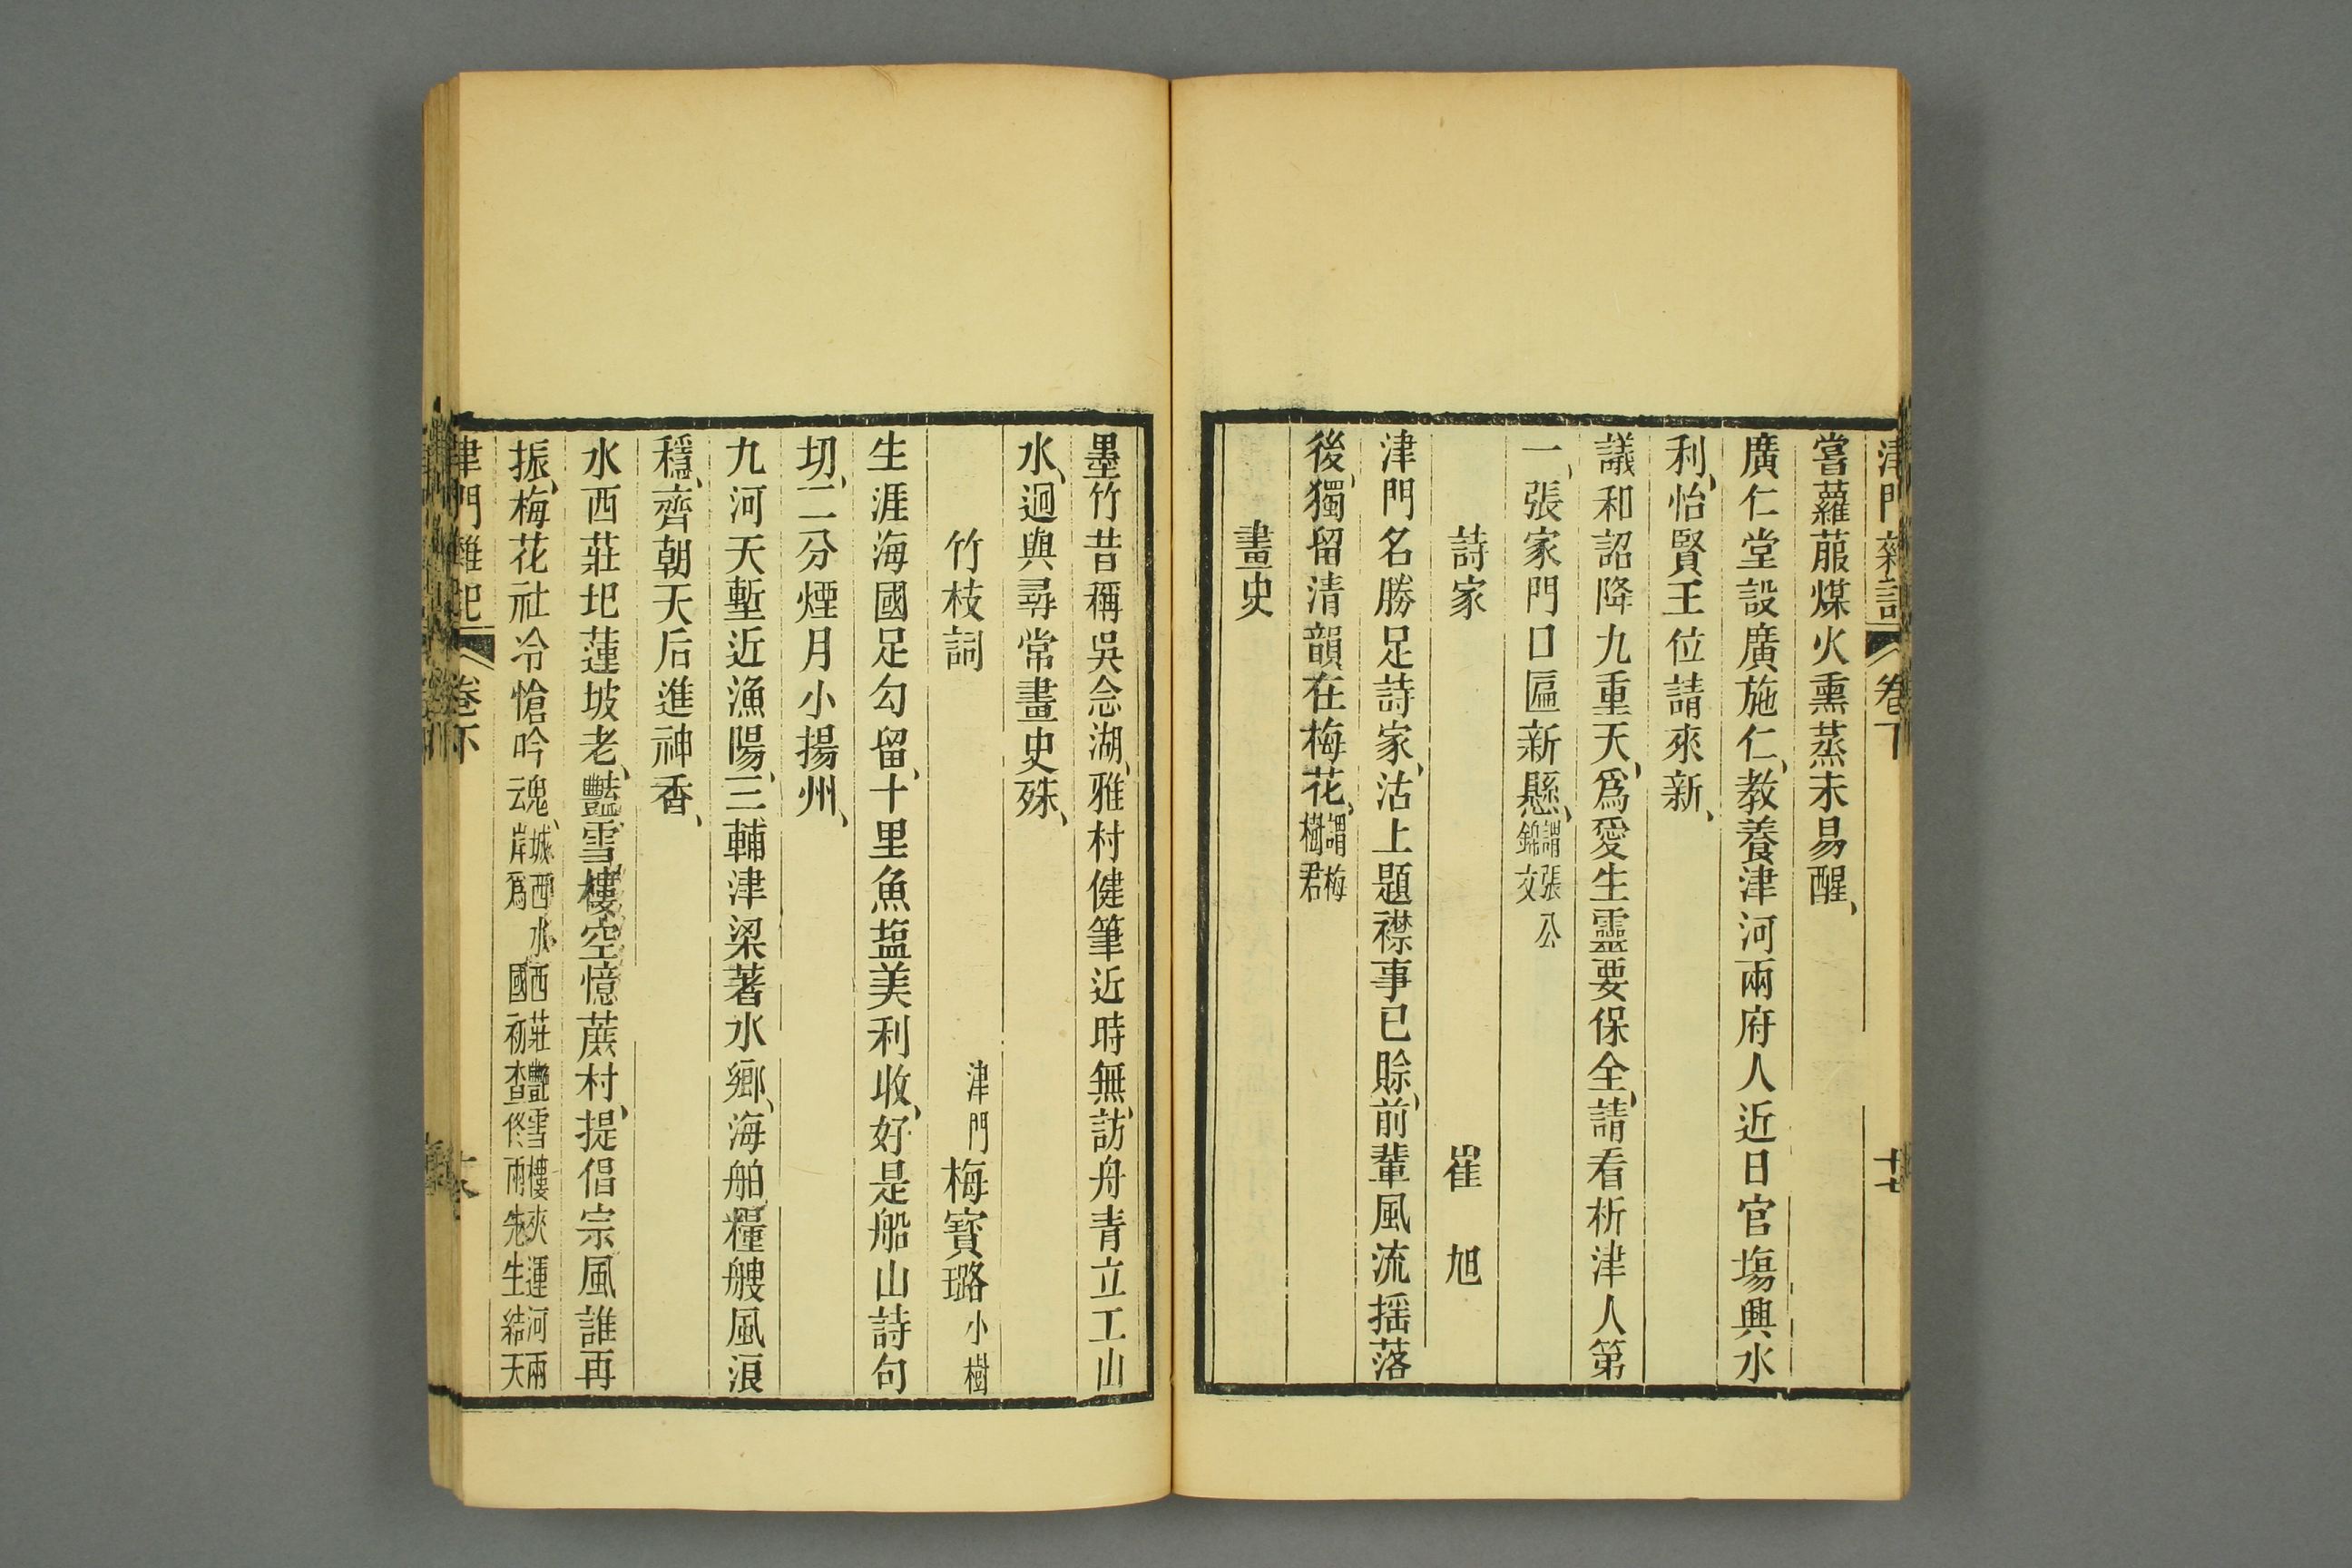 津門雜記 卷下 十七
嘗蘿菔煤火熏蒸未易醒、
廣仁堂設廣施仁、教養津河兩府人近日官塲興水
利、怡賢王位請來新、
議和詔降九重天、爲愛生靈要保全、請看析津人第
一、張家門口匾新懸、謂張公錦文
詩家 崔旭
津門名勝足詩家、沽上題襟事已賒、前輩風流揺落
後、獨留清韻在梅花、謂梅樹君
畫史
墨竹昔稱吳念湖、雅村健筆近時無、訪舟青立工山
水、迥與尋常畫史殊、
竹枝詞 津門梅寶璐小樹
生涯海國足勾留、十里魚塩美利收、好是船山詩句
切、二分煙月小揚州、
九河天塹近漁陽、三輔津梁著水鄉、海舶糧艘風浪
穩、齊朝天后進神香、
水西莊圯蓮坡老、豔雪樓空憶蔗村、提倡宗風誰再
振、梅花社冷愴吟魂、城西水西莊艷雪樓夾運河兩岸爲國初查佟兩先生結天
津門雜記 卷下